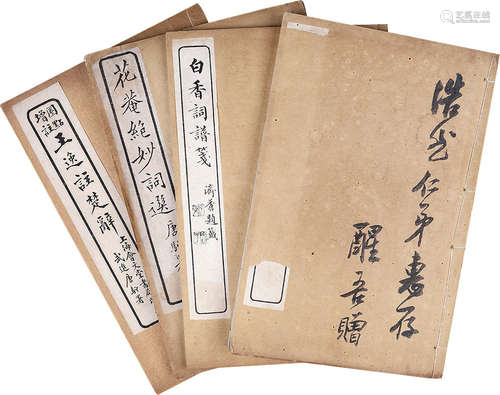 浩公仁弟惠存
醒吾贈
白香詞譜箋
濟青題籤
花菴絕妙詞選
圈點
增註
王逸註楚辭
上海會文堂書局
武進唐